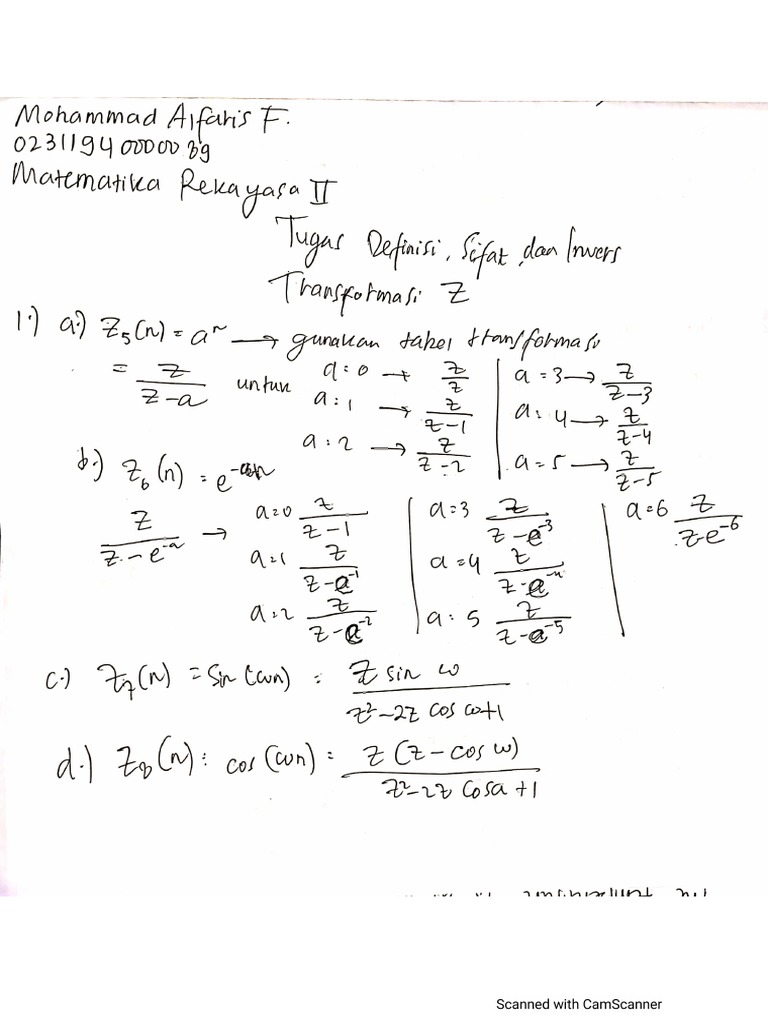 Mohammad Alfaris F.
02311940000039
Matematika Rekayasa II
Tugas Definisi, Sifat, dan Invers
Transformasi Z
1.) a.) Z₅(n) = aⁿ → gunakan tabel transformasi
= z/(z-a) untuk a=0 → z/z | a=3 → z/(z-3)
a=1 → z/(z-1) | a=4 → z/(z-4)
a=2 → z/(z-2) | a=5 → z/(z-5)
b.) Z₆(n) = e
z/(z-e⁻ᵃ) → a=0 z/(z-1) | a=3 z/(z-e⁻³) | a=6 z/(z e⁻⁶)
a=1 z/(z-e⁻¹) | a=4 z/(z-e⁻⁴)
a=2 z/(z-e⁻²) | a=5 z/(z-e⁻⁵)
c.) Z₇(n) = sin(ωn) = z sin ω/(z²-2z cos ω+1)
d.) Z₈(n) = cos(ωn) = z(z-cos ω)/(z²-2z cos a+1)
Scanned with CamScanner